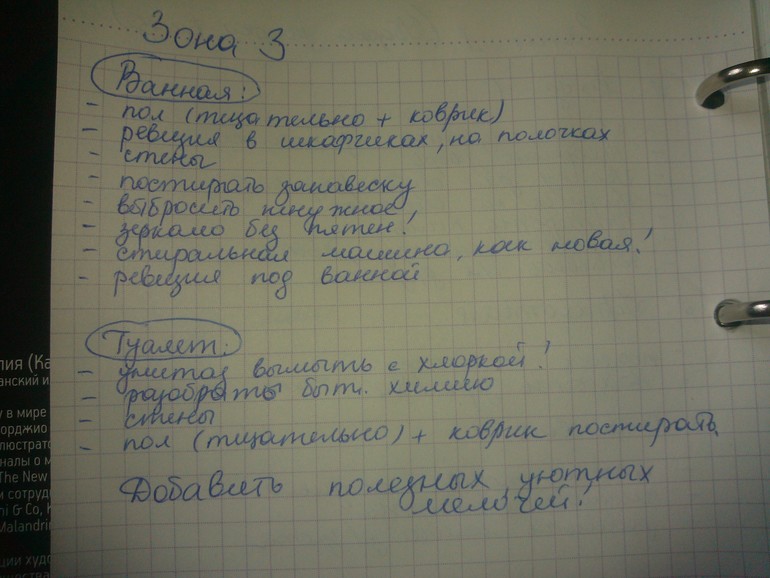 Зона 3
Ванная:
- пол (тщательно + коврик)
- ревизия в шкафчиках, на полочках
- стены
- постирать занавеску
- выбросить ненужное!
- зеркало без пятен!
- стиральная машина, как новая!
- ревизия под ванной
Туалет:
- унитаз вымыть с хлоркой!
- разобрать быт. химию
- стены
- пол (тщательно) + коврик постирать
Добавить полезных, уютных
мелочей!
лия (Ка
анский и
у в мире
орджио
люстрато
налы о м
The New
и сотруд
ni & Co, K
Malandrin
ции худо